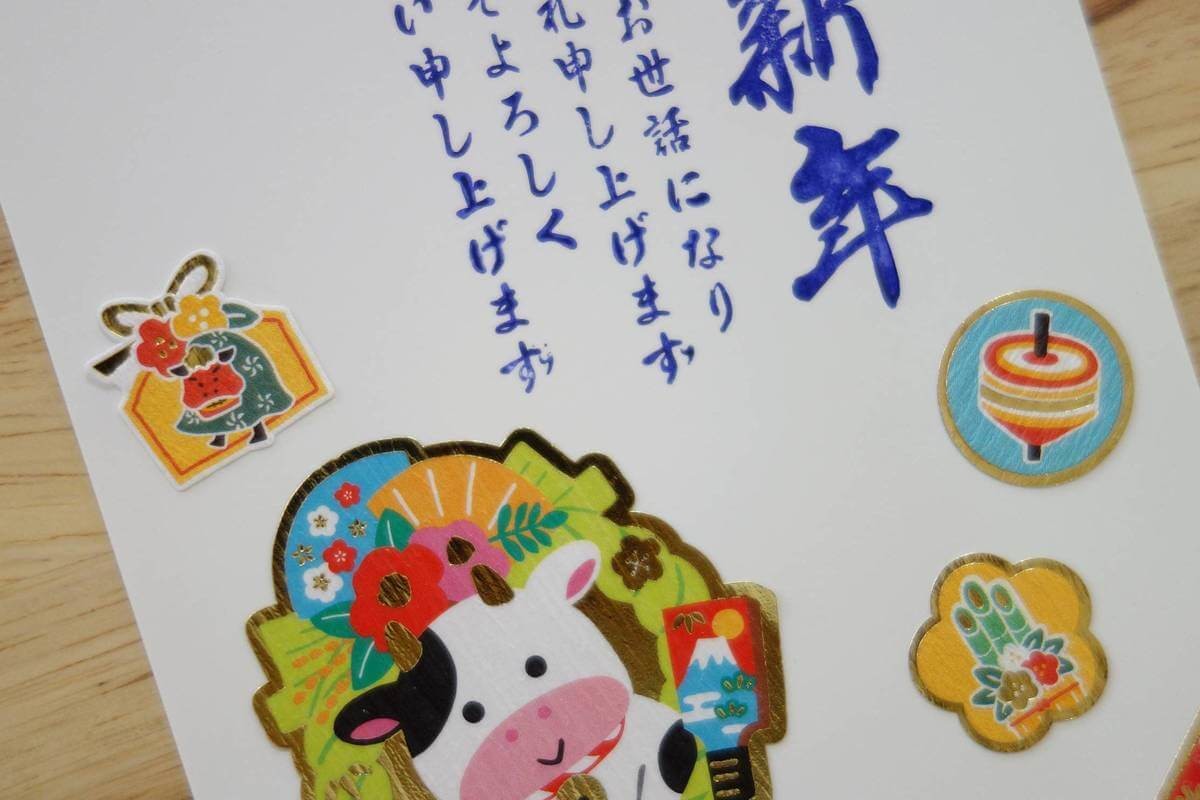 新年
お世話になり
礼申し上げます
てよろしく
い申し上げます